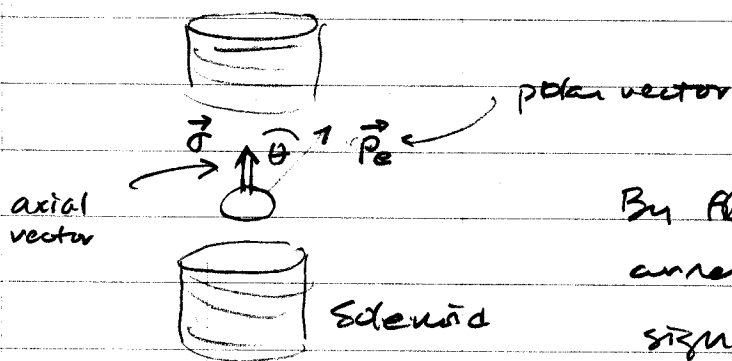 polar vector
σ⃗ θ p⃗e
axial
vector
By
Solenoid
sign